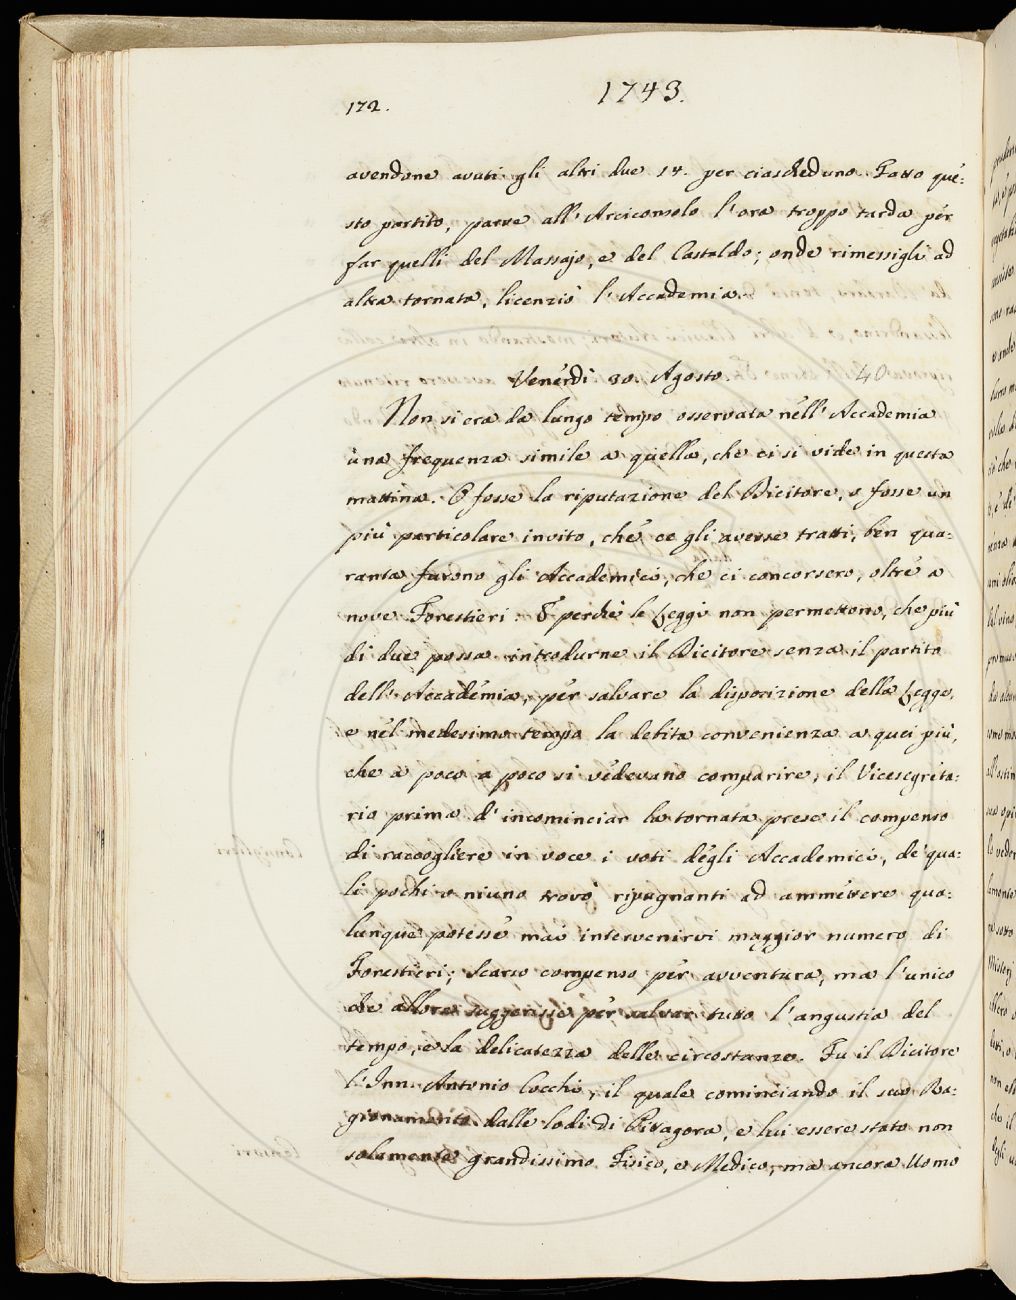 172.
1743.
avendone avuti gli altri due 14. per ciascheduno. Fatto que:
sto partito, parve all' Arciconsolo l'ora troppo tarda per
far quelli del Massajo, e del Castaldo; onde rimessigli ad
altra tornata, licenziò l'Accademia.
Venerdì 30. Agosto. 40
Non si era da lungo tempo osservata nell'Accademia
una frequenza simile a quella, che ci si vide in questa
mattina. O fosse la riputazione del Dicitore, o fosse un
più particolare invito, che ce gli avesse tratti, ben qua:
ranta furono gli Accademici, che ci concorsero, oltre a
nove Forestieri. E perchè le Leggi non permettono, che più
di due possa introdurne il Dicitore senza il partito
dell'Accademia, per salvare la disposizione della Legge,
e nel medesimo tempo la debita convenienza a quei più,
che a poco a poco si vedevano comparire, il Vicesegreta:
rio prima d'incominciar la tornata prese il compenso
di raccogliere in voce i voti degli Accademici, de' qua:
li pochi o niuno trovò ripugnanti ad ammettere qua:
lunque potesse mai intervenirvi maggior numero di
Forestieri; Scarso compenso per avventura, ma l'unico
che allora suggerisse per salvar tutto l'angustia del
tempo, e la delicatezza delle circostanze. Fu il Dicitore
l'Inn. Antonio Cocchi, il quale cominciando il suo Ra:
gionamento dalle lodi di Pitagora, e lui essere stato non
solamente grandissimo Fisico, e Medico, ma ancora Uomo